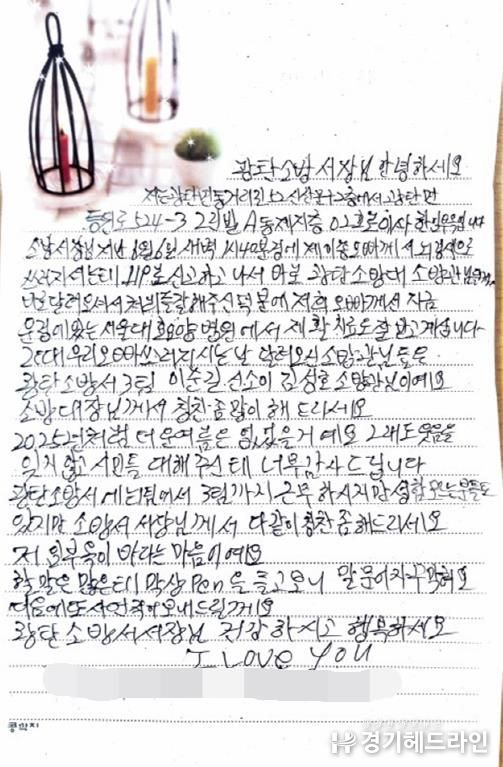 광탄소방서장님 안녕하세요
저는 광탄면
등원로 524-3 2차빌 A동 제지층 02호로 이사한
소방서장님 지난 8월 6일 새벽 1시 40분경에 제 이종오빠께서 뇌경색으로
쓰러지셔는데 119로 신고하고 나서 바로 광탄소방대 소방관님들께서
달려오셔서 처치를 잘해주신 덕분에 저희 오빠께서 지금
운정에 있는 서울대효요양병원에서 재활치료도 잘 받고 계십니다
그런데 우리 오빠 쓰러지시는 날 달려오신 소방관님들은
광탄소방서 3팀 이순길 선소이 김성호 소방관님이예요
소방대장님께서 칭찬 좀 많이 해 드리세요
2025년처럼 더운 여름은 없었을거예요 그래도 웃음을
잊지 않고 시민들 대해주신데 너무 감사드립니다
광탄소방서에 1팀에서 3팀까지 근무하시지만 성함 모르는 분들도
있지만 소방서 서장님께서 다같이 칭찬 좀 해드리세요
저 원부욱이 바라는 마음이예요
할 말은 많은데 막상 Pen을 들고보니 말문이 자꾸 막혀요
다음에 또 사연 적어 보내드릴께요
광탄소방서 서장님 건강하시고 행복하세요
I Love You
콩딱지
경기헤드라인